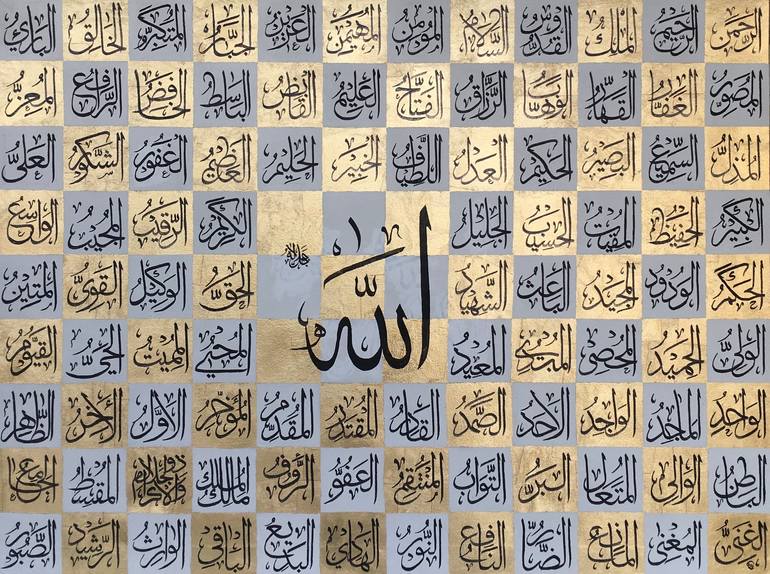 الرحمن الرحيم الملك القدوس السلام المؤمن المهيمن العزيز الجبار المتكبر الخالق البارئ
المصور الغفار القهار الوهاب الرزاق الفتاح العليم القابض الباسط الخافض الرافع المعز
المذل السميع البصير الحكيم العدل اللطيف الخبير الحليم العظيم الغفور الشكور العلي
الكبير الحفيظ المقيت الحسيب الجليل الكريم الرقيب المجيب الواسع
الله جل جلاله
الحكيم الودود المجيد الباعث الشهيد الحق الوكيل القوي المتين
الولي الحميد المحصي المبدئ المعيد المحيي المميت الحي القيوم
الواحد الماجد الواجد الاحد الصمد القادر المقتدر المقدم المؤخر الأول الأخر الظاهر
الباطن الوالي المتعال البر التواب المنتقم العفو الرؤف مالك الملك ذو الجلال والاكرام المقسط الجامع
الغني المغني المانع الضار النافع النور الهادي البديع الباقي الوارث الرشيد الصبور